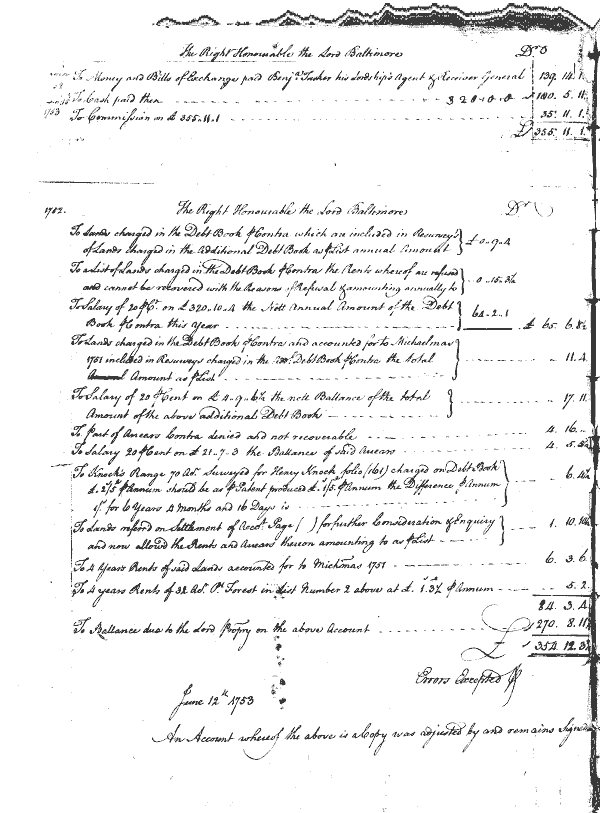 The Right Honourable the Lord Baltimore Dr
To Money and Bills of Exchange paid Benja Tasker his Lordship's Agent & Receiver General 139. 14. 1
To Cash paid then 320.0.0 180. 5. 11
1753 To Commission on £ 355.11.1 35. 11. 1
£ 355. 11. 1
1752. The Right Honourable the Lord Baltimore Dr
To Lands charged in the Debt Book ⅌ Contra which are included in Resurveys
of Lands charged in the Additional Debt Book as ⅌ List annual Amount £ 0-9-4
To a List of Lands charged in the Debt Book ⅌ Contra the Rents whereof are refused
and cannot be recovered with the Reasons of Refusal & amounting annually to 0-15-3½
To Salary of 20 ⅌ Ct. on £320-10-4 the Nett Annual Amount of the Debt
Book ⅌ Contra this Year 64-2-1 £ 65. 6. 8½
To Lands charged in the Debt Book ⅌ Contra and accounted for to Michaelmas
1751 included in Resurveys charged in the Debt Book ⅌ Contra the total
Amount as ⅌ List 11. 4
To Salary of 20 ⅌ Cent on £ 4-9-6½ the nett Ballance of the total
Amount of the above additional Debt Book 17. 11
To Part of Arrears Contra denied and not recoverable 4. 16.
To Salary 20 ⅌ Cent on £ 21-7-3 the Ballance of said Arrears 4. 5.
To Knock's Range 70 As. Surveyed for Henry Knock folio (161) charged on Debt Book
£. 2/5 ⅌ Annum should be as ⅌ Patent produced £. 1/5 ⅌ Annum the Difference ⅌ Annum
for 6 Years 4 Months and 16 Days is 6. 4½
To Lands refered on Settlement of Accot. Page ( ) for further Consideration & Enquiry
and now allowed the Rents and Arrears thereon amounting to as ⅌ List 1. 10. 10½
To 4 Years Rents of said Lands accounted for to Michmas 1751 6. 3. 6
To 4 years Rents of 32 As. Pt. Forest in List Number 2 above at £. 1.3½ ⅌ Annum 5. 2
84. 3. 4
To Ballance due to the Lord Propry on the above Account 270. 8. 11½
£ 354. 12. 3½
Errors Excepted ⅌
June 12th 1753
An Account whereof the above is a Copy was adjusted by and remains Signed